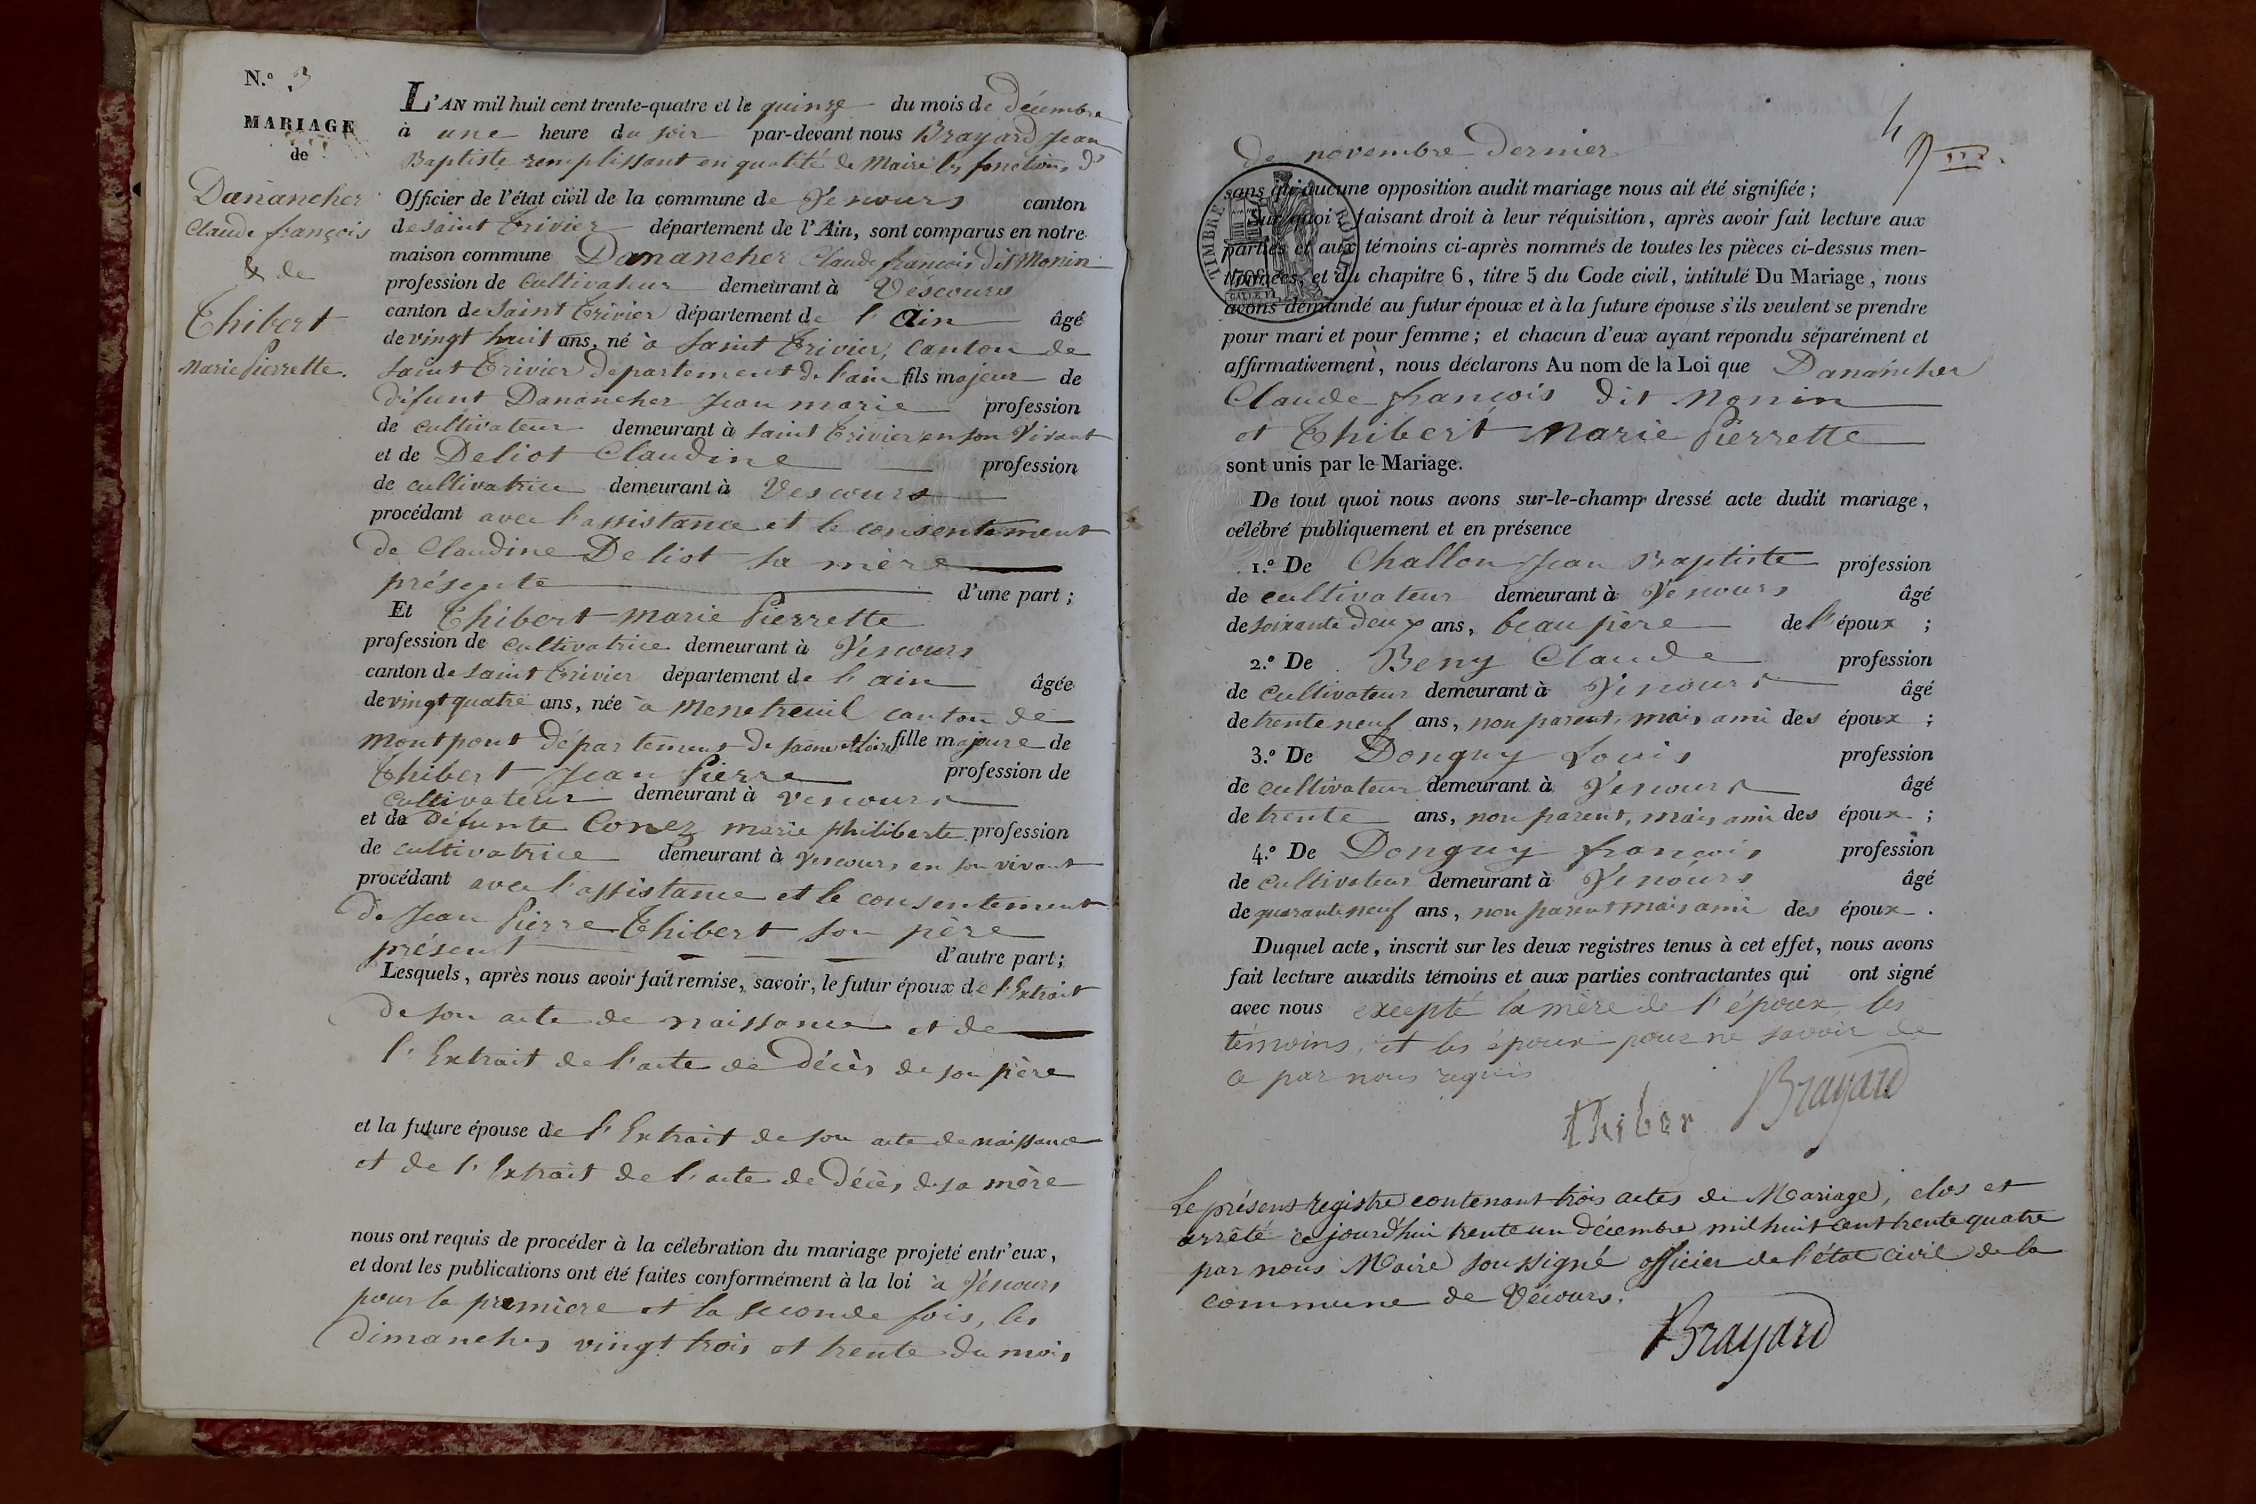 N.° 3
MARIAGE
de
Danancher
Claude françois
& de
Thibert
Marie Pierrette.
L'AN mil huit cent trente-quatre et le quinze du mois de Décembre
à une heure du soir par-devant nous Brayard Jean
Baptiste remplissant en qualité de Maire les fonctions d'
Officier de l'état civil de la commune de Vescours canton
de saint Trivier département de l'Ain, sont comparus en notre
maison commune Danancher Claude françois dit Monin
profession de Cultivateur demeurant à Vescours
canton de Saint Trivier département de l'Ain âgé
de vingt huit ans, né à Saint Trivier, Canton de
Saint Trivier département de l'ain fils majeur de
défunt Danancher Jean marie profession
de cultivateur demeurant à saint trivier en son Vivant
et de Deliot Claudine profession
de cultivatrice demeurant à Vescours
procédant avec l'assistance et le consentement
de Claudine Deliot sa mère
présente d'une part ;
Et Thibert Marie Pierrette
profession de cultivatrice demeurant à Vescours
canton de saint Trivier département de l'ain âgée
de vingt quatre ans, née à Menetreuil canton de
Montpont département de saone et loire fille majeure de
Thibert Jean Pierre profession de
cultivateur demeurant à Vescours
et de défunte Conez marie philiberte profession
de cultivatrice demeurant à Vescours en son vivant
procédant avec l'assistance et le consentement
de Jean Pierre Thibert son père
présent d'autre part ;
Lesquels, après nous avoir fait remise, savoir, le futur époux de l'Extrait
de son acte de naissance et de
l'Extrait de l'acte de Décès de son père
et la future épouse de l'Extrait de son acte de naissance
et de l'Extrait de l'acte de Décès de sa mère
nous ont requis de procéder à la célébration du mariage projeté entr'eux,
et dont les publications ont été faites conformément à la loi à Vescours
pour la première et la seconde fois, les
dimanches vingt trois et trente du mois
4
de novembre dernier
TIMBRE ROYAL
sans qu'aucune opposition audit mariage nous ait été signifiée ;
Sur quoi faisant droit à leur réquisition, après avoir fait lecture aux
parties et aux témoins ci-après nommés de toutes les pièces ci-dessus men-
tionnées, et du chapitre 6, titre 5 du Code civil, intitulé Du Mariage, nous
avons demandé au futur époux et à la future épouse s'ils veulent se prendre
pour mari et pour femme ; et chacun d'eux ayant répondu séparément et
affirmativement, nous déclarons Au nom de la Loi que Danancher
Claude françois dit Monin
et Thibert Marie Pierrette
sont unis par le Mariage.
De tout quoi nous avons sur-le-champ dressé acte dudit mariage,
célébré publiquement et en présence
1.° De Challon Jean Baptiste profession
de cultivateur demeurant à Vescours âgé
de soixante deux ans, beau père de l'époux ;
2.° De Beny Claude profession
de cultivateur demeurant à Vescours âgé
de trente neuf ans, non parent, mais ami des époux ;
3.° De Donguy Louis profession
de cultivateur demeurant à Vescours âgé
de trente ans, non parent, mais ami des époux ;
4.° De Donguy françois profession
de cultivateur demeurant à Vescours âgé
de quarante neuf ans, non parent mais ami des époux .
Duquel acte, inscrit sur les deux registres tenus à cet effet, nous avons
fait lecture auxdits témoins et aux parties contractantes qui ont signé
avec nous excepté la mère de l'époux, les
témoins, et les époux pour ne savoir de
ce par nous requis
thiber Brayard
Le présent registre contenant trois actes de Mariage, clos et
arrêté ce jourd'hui trente un décembre mil huit cent trente quatre
par nous Maire soussigné officier de l'état civil de la
commune de Vécours.
Brayard